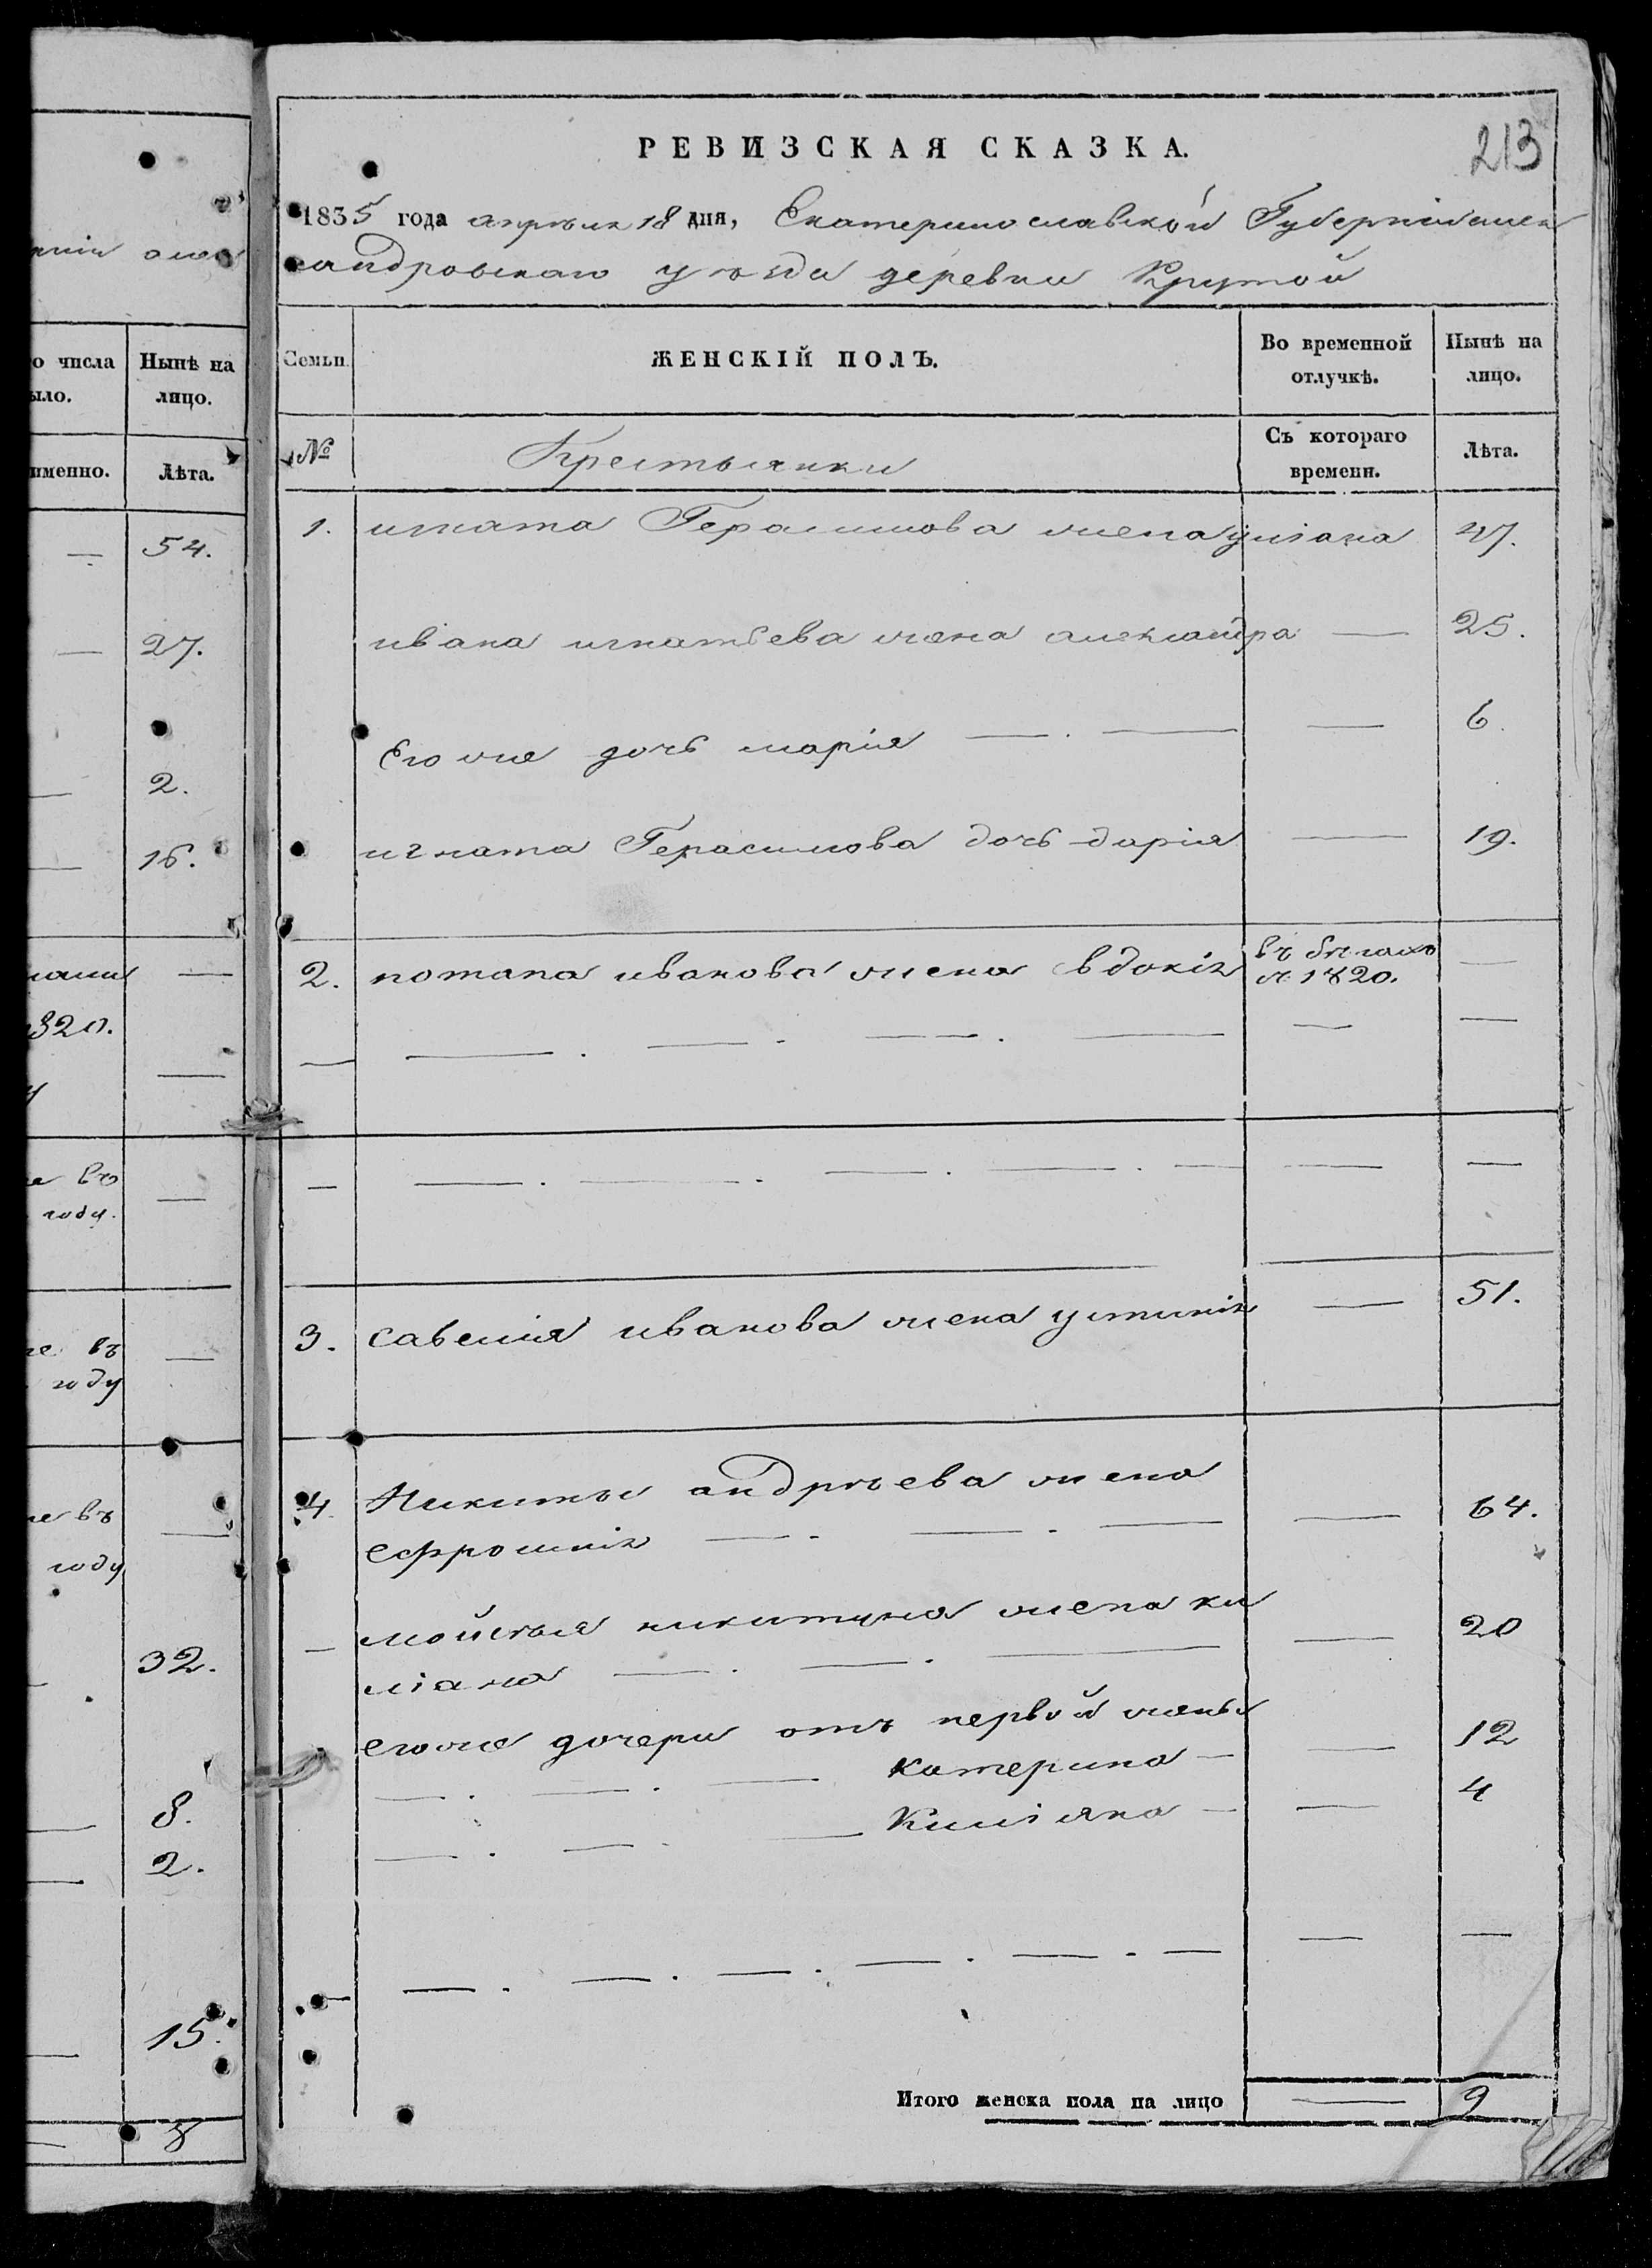 рніи алек
о числа
ыло.
Нынѣ на
лицо.
именно.
Лѣта.
— 54.
— 27.
— 2.
— 16.
—
820.
—
е въ
году. —
е въ
году —
е въ
году —
32.
— 8.
— 2.
— 15.
— 8
213
РЕВИЗСКАЯ СКАЗКА.
1835 года апрѣля 18 дня, Екатеринославской Губерніи алек
сандровскаго уѣзда деревни Крутой
Семьи. ЖЕНСКІЙ ПОЛЪ. Во временной отлучкѣ. Нынѣ на лицо.
№ Крестьянки Съ котораго времени. Лѣта.
1. игната Герасимова жена уліана 47.
ивана игнатьева жена александра — 25.
Его же дочь марія — . — — 6.
игната Герасимова дочь дарія — 19.
2. потапа иванова жена евдокія въ бѣгахъ с 1820. —
— — . — - — — . — — —
— — . — . — . — . — — —
3. савелія иванова жена устинія — 51.
4. Никиты андрѣева жена
ефросинія — - — . — — 64.
— мойсея никитина жена ки
ліяна — . — . — — 20
его же дочери отъ первой жены
— . — . — катерина — — 12
— . — . — Киліяна — — 4
— — . — . — . — . — . — — —
Итого женска пола на лицо — 9